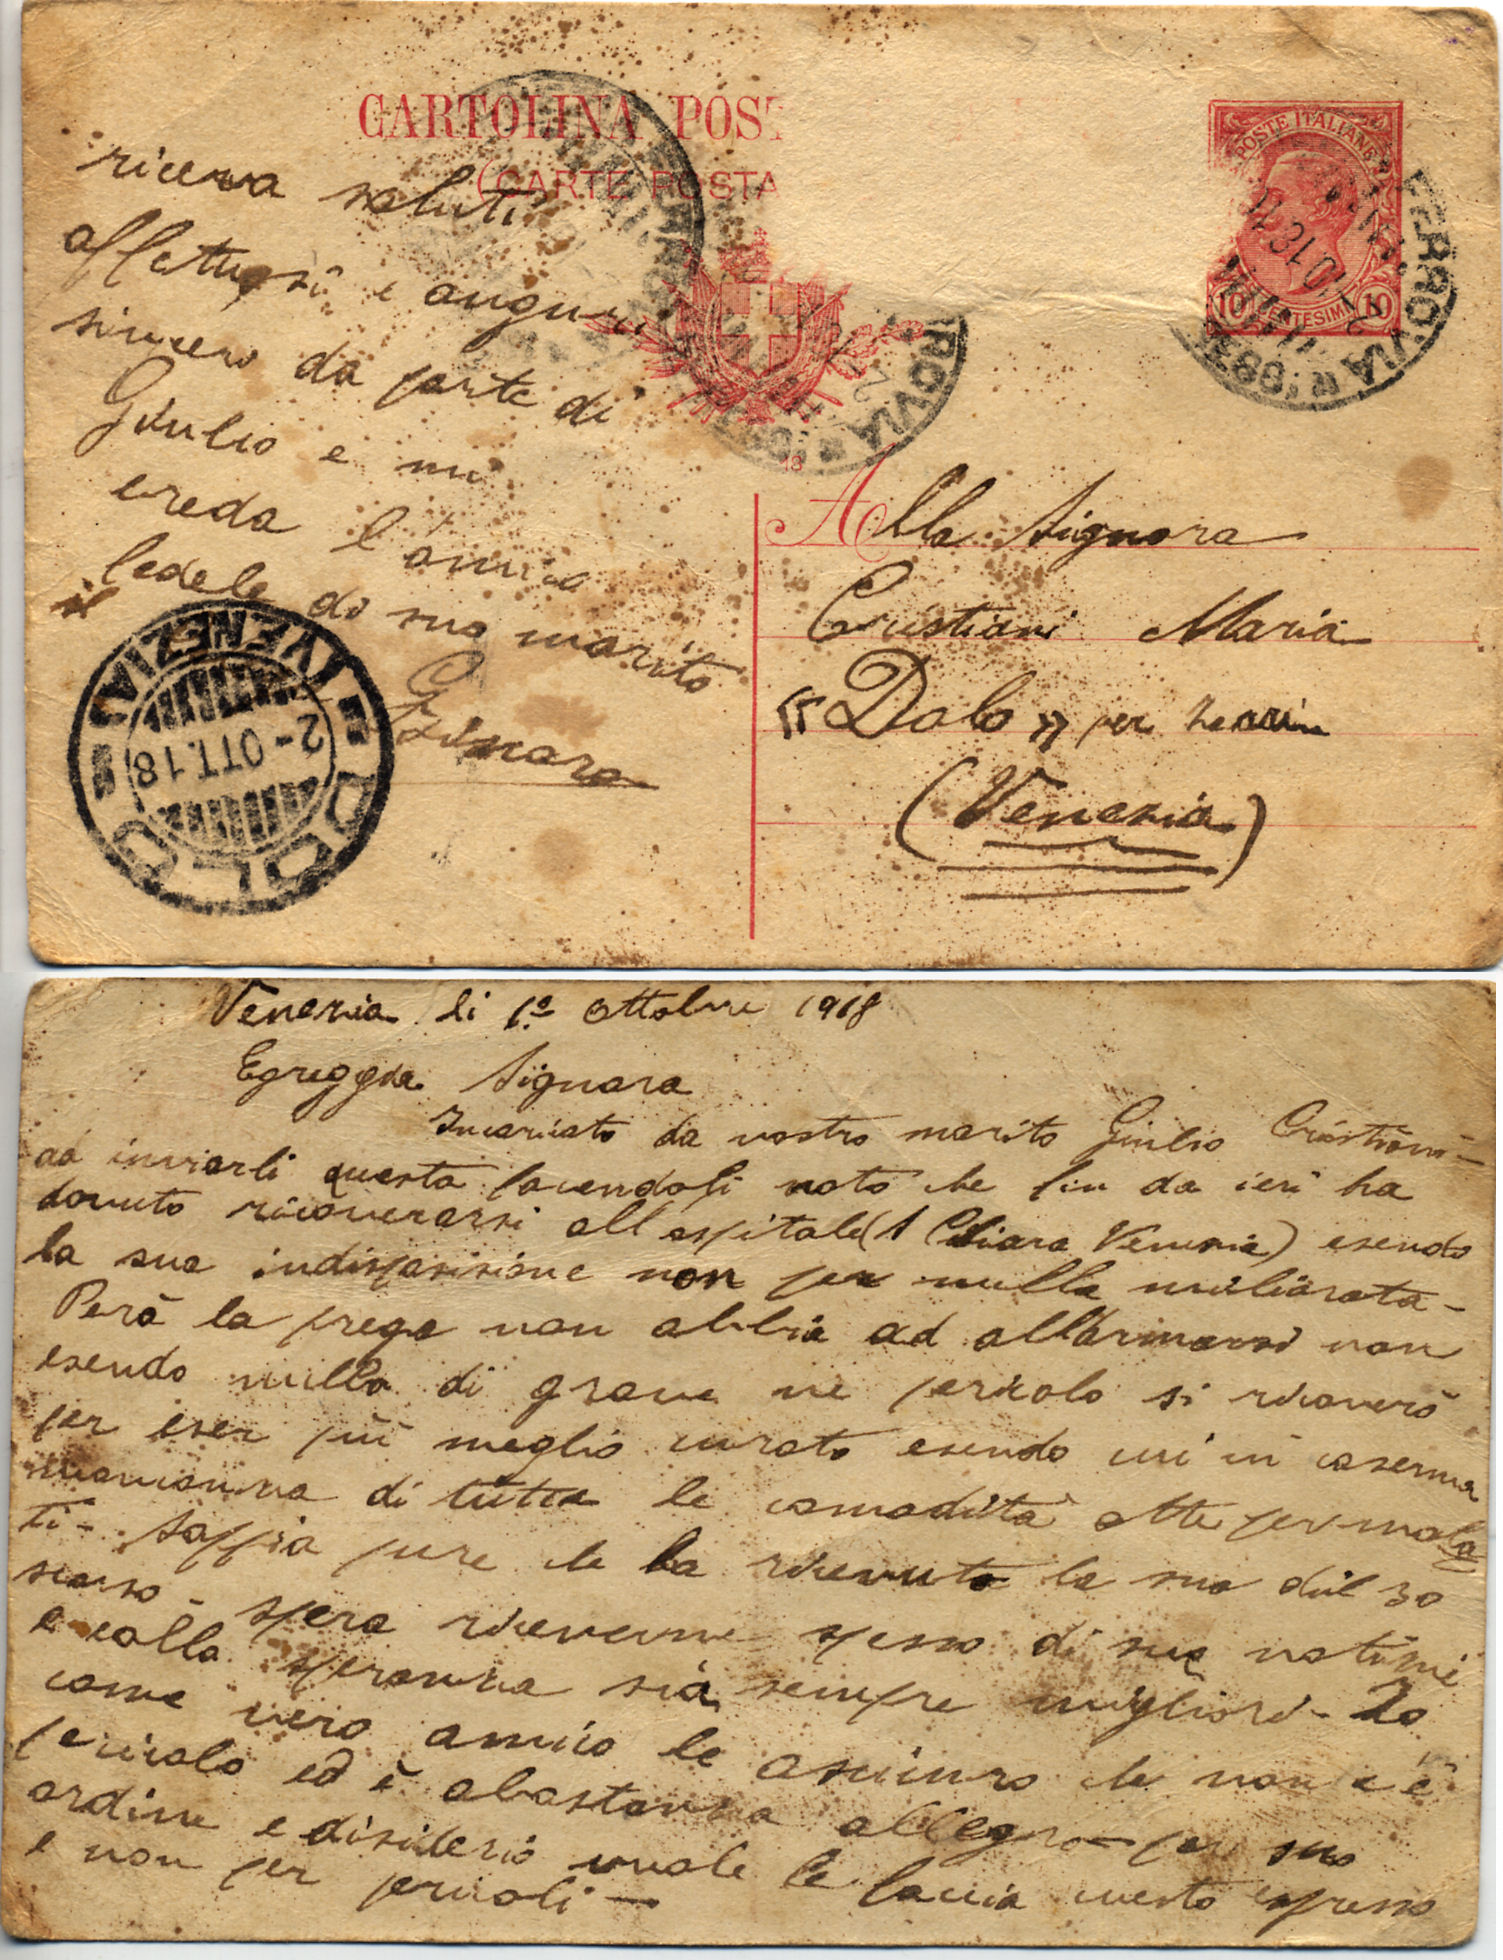 CARTOLINA POST
(CARTE POSTA
POSTE ITALIANE
10 CENTESIMI 10
FERROVIA
riceva saluti
affettuosi e auguri
sinceri da parte di
Giulio e mi
creda l'amico
fedele di suo marito
DOLO (VENEZIA)
2-OTT.18
18
Alla Signora
Cristiani Maria
"Dolo" per
(Venezia)
Venezia li 1º Ottobre 1918
Egreggia Signora
Incaricato da vostro marito Giulio Cristiani-
ad inviarli questa facendogli noto che fin da ieri ha
dovuto ricoverarsi all ospitale (S Chiara Venezia) esendo
la sua indisposizione non per nulla miliorata-
Però la prego non abbia ad allarmarsi non
esendo nulla di grave ne pericolo si ricoverò
per eser più meglio curato esendo qui in caserma
mancanza di tutte le comodità atte per mala
ti- Sappia pure che ha ricevuto la sua del 30
scorso - spera riceverne spesso di sue notizie
e colla speranza sia sempre migliori- Io
come vero amico le assicuro che non c è
pericolo ed è abastanza allegro- per suo
ordine e disiderio vuole le faccia questo espresso
e non per pericoli-